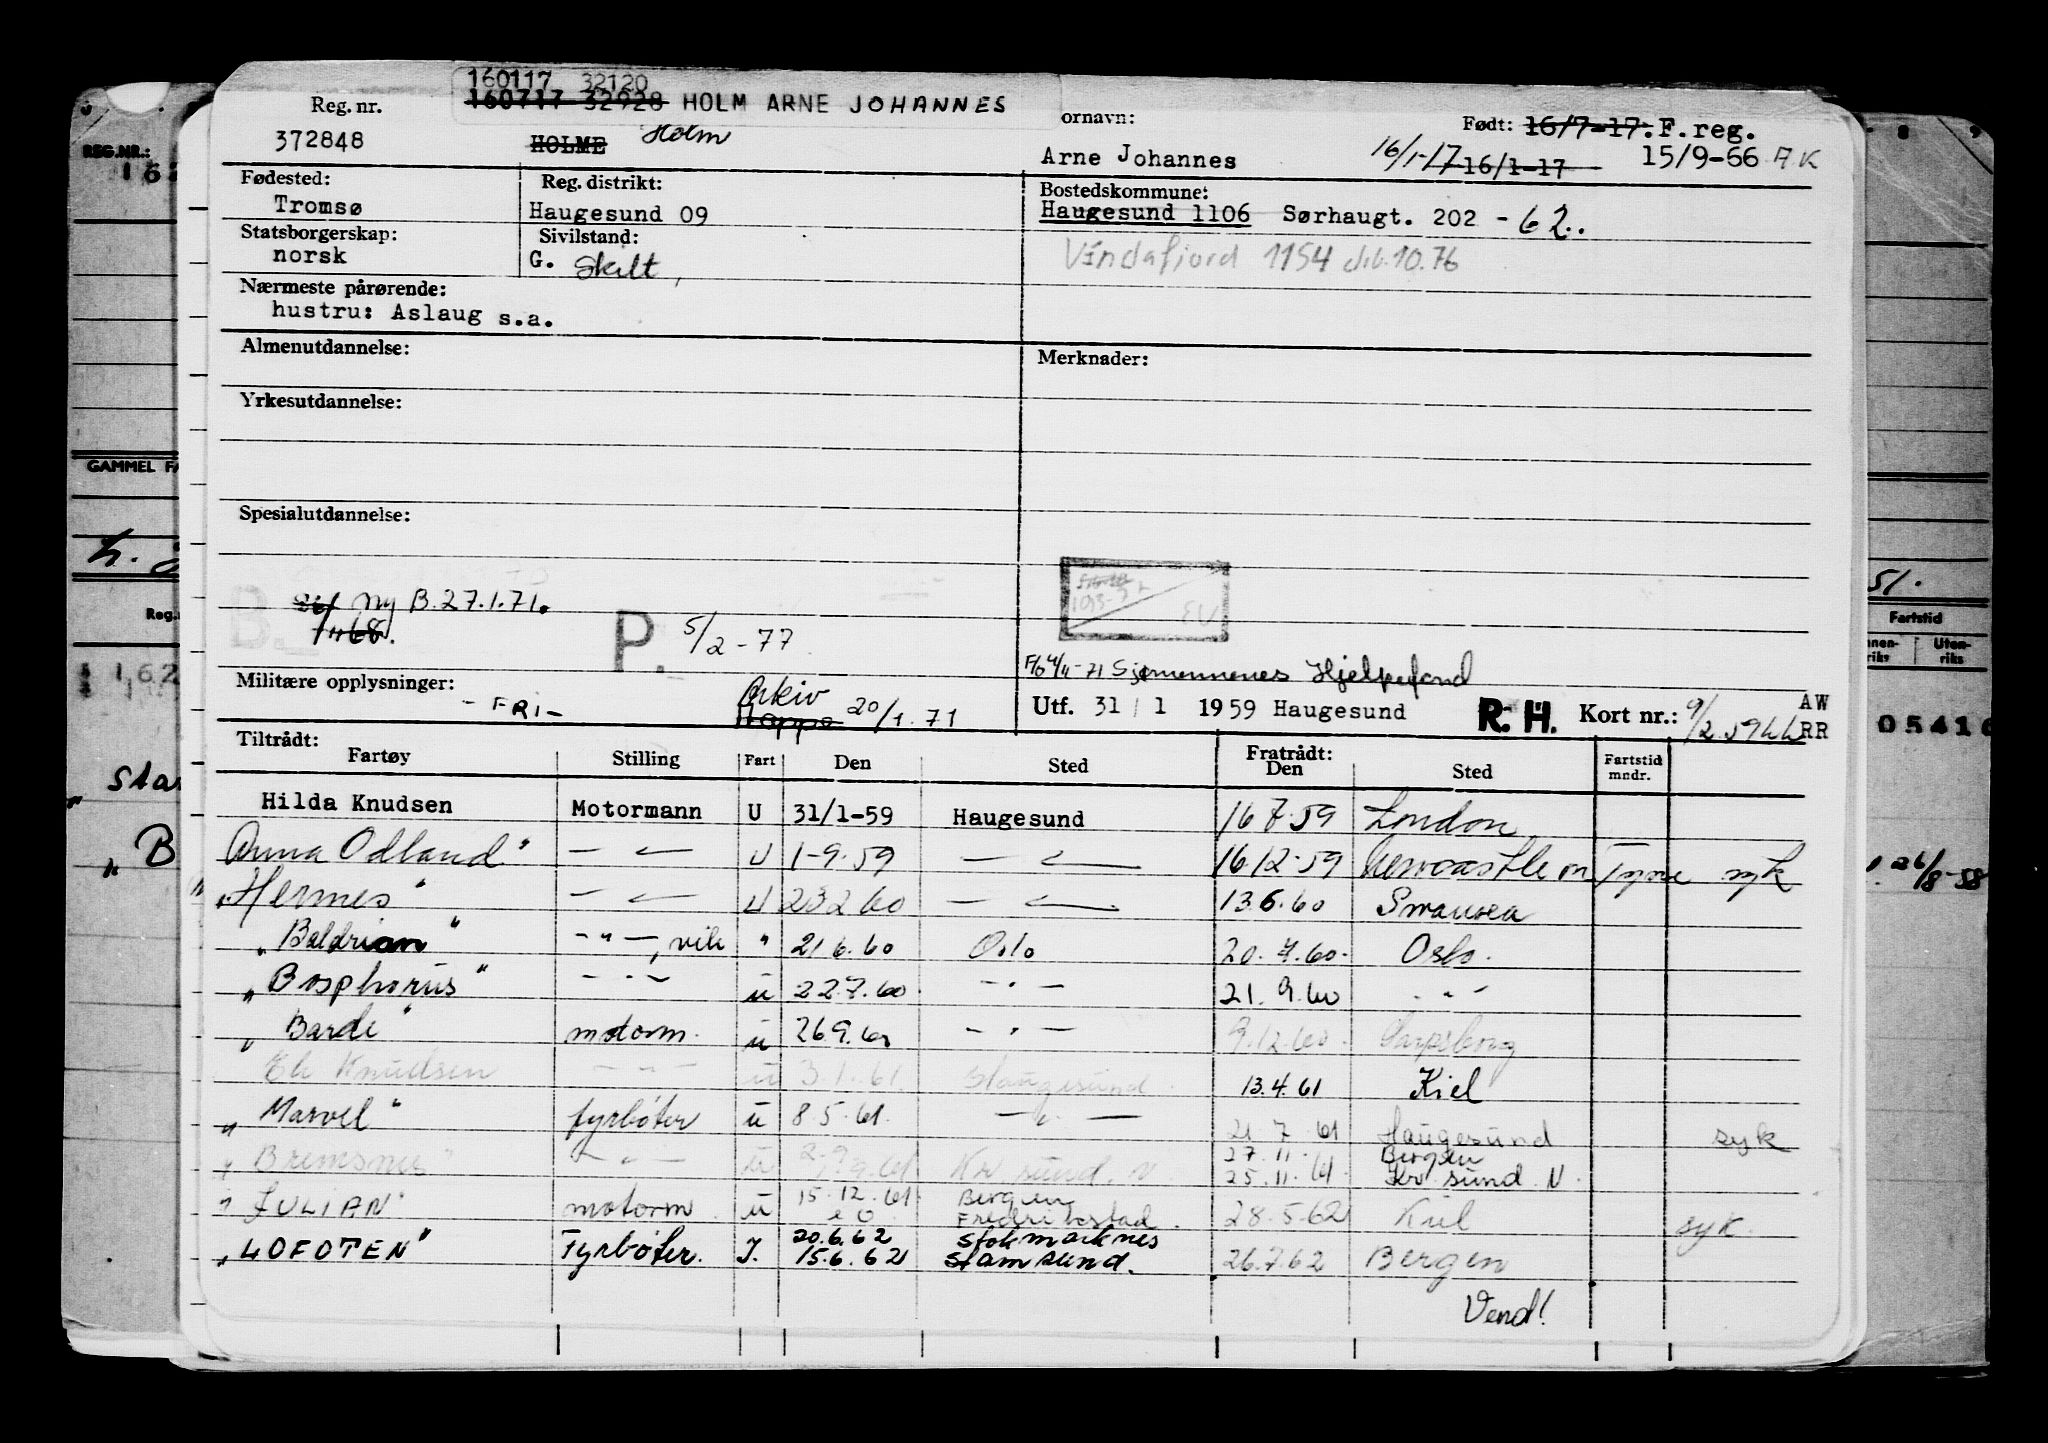 160117 32120
160717 32928 HOLM ARNE JOHANNES
Reg. nr. ornavn: Født: 16/7-17. F.reg.
372848 HOLME Holm Arne Johannes 16/1-17 16/1-17 15/9-66 AK
Fødested: Reg. distrikt: Bostedskommune:
Tromsø Haugesund 09 Haugesund 1106 Sørhaugt. 202 - 62.
Statsborgerskap: Sivilstand:
norsk G. Skilt, Vindafjord 1154 10.76
Nærmeste pårørende:
hustru: Aslaug s.a.
Almenutdannelse: Merknader:
Yrkesutdannelse:
Spesialutdannelse:
ny B.27.1.71.
P. 5/2-77
Sjømennenes Hjelpefond
Militære opplysninger: Arkiv
- FRI - Hoppe 20/1.71 Utf. 31/1 1959 Haugesund R.H. Kort nr.: 9/2.59 AW RR
Tiltrådt: Fratrådt:
Fartøy Stilling Fart Den Sted Den Sted Fartstid mndr.
Hilda Knudsen Motormann U 31/1-59 Haugesund 16 7.59 London
Anna Odland" — " — U 1-9.59 — " — 16.12.59 Newcastle on Tyne syk
"Hermes" — " — U 23 2 60 — " — 13.6.60 Swansea
"Baldrian" - " -, vik " 21 6.60 Oslo 20.7.60. Oslo.
"Bosphorus" - " - u 22.7.60. - " - 21.9.60 - " -
"Barde" motorm. u 26 9.60 - " - 9.12.60. Sarpsborg
Eli Knudsen - " - u 3.1.61. Haugesund. 13.4.61 Kiel
"Marvel" fyrbøter u 8.5.61. - " - 21 7 61 Haugesund syk
27.11. Bergen
"Bremsnes" - " - u 2-9 61. Kr. sund. N 25.11.61. Kr. sund. N.
15.12.61. Bergen
"JULIAN" motorm. u Fredrikstad. 28.5.62 Kiel syk.
20.6.62 Stokmarknes
"LOFOTEN" Fyrbøter. I. 15.6.62 Stamsund. 26.7.62 Bergen
Vend!
REG.NR.:
162
GAMMEL FA
Reg.
162
Star
"B
8 9
51.
Fartstid
Uten-
riks
05416
26/8-58